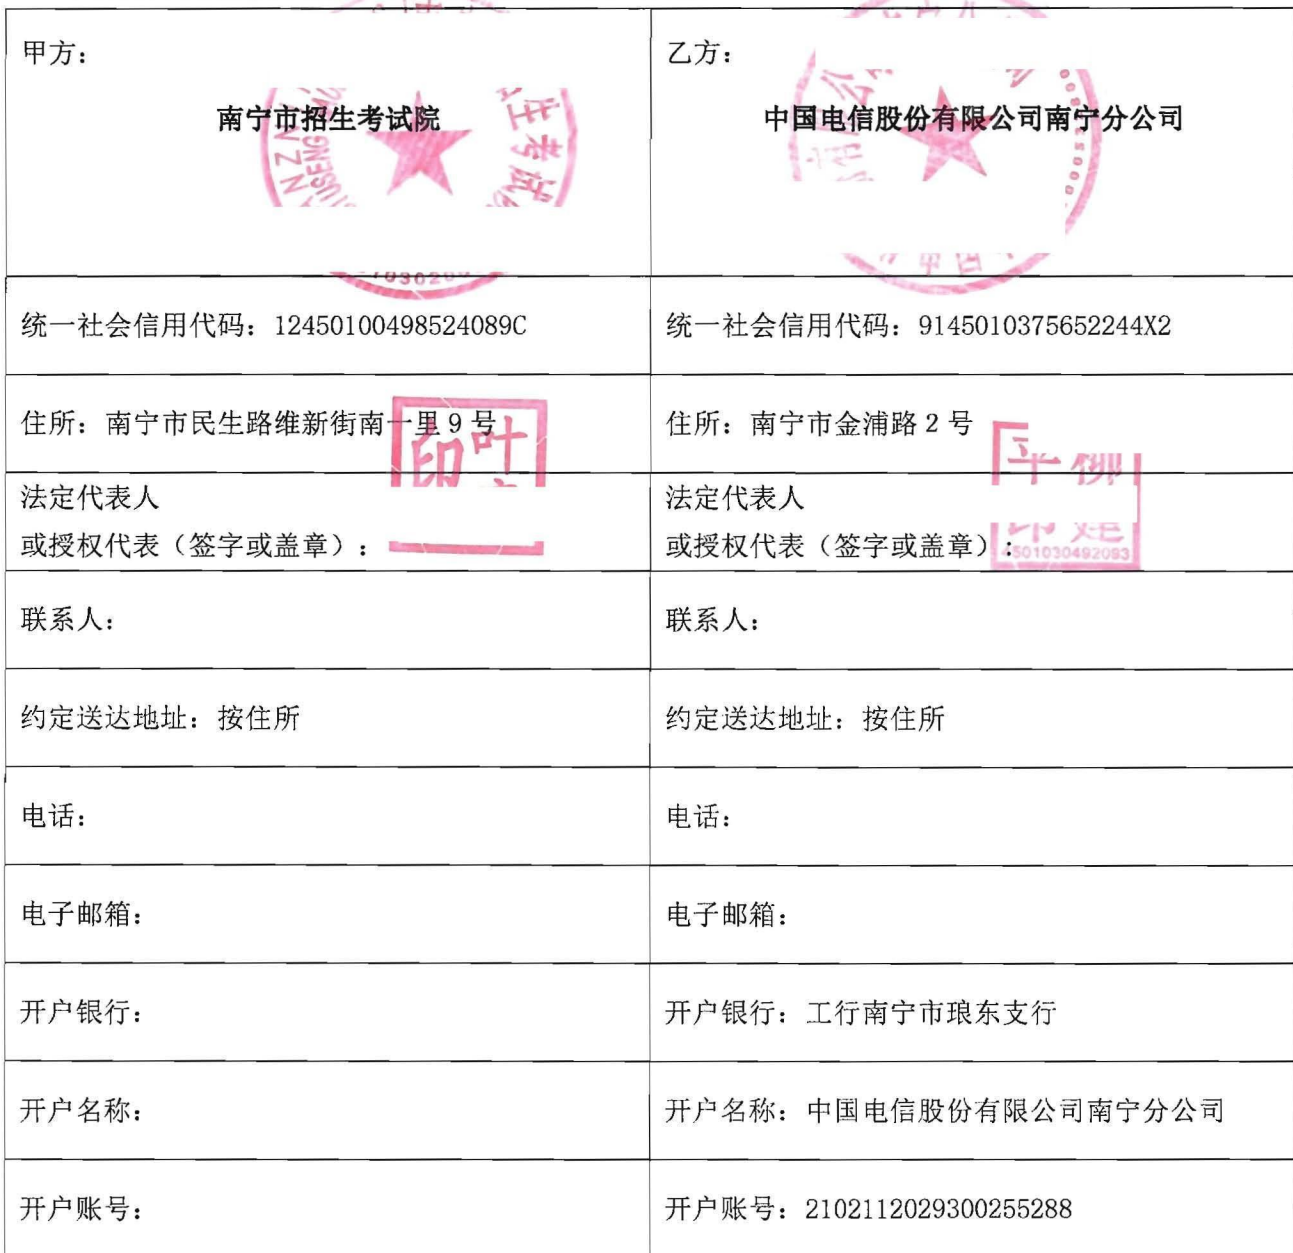 甲方：
南宁市招生考试院
乙方：
中国电信股份有限公司南宁分公司
统一社会信用代码：12450100498524089C
统一社会信用代码：9145010375652244X2
住所：南宁市民生路维新街南一里9号
住所：南宁市金浦路2号
法定代表人
或授权代表（签字或盖章）：
法定代表人
或授权代表（签字或盖章）：
4501030492093
联系人：
联系人：
约定送达地址：按住所
约定送达地址：按住所
电话：
电话：
电子邮箱：
电子邮箱：
开户银行：
开户银行：工行南宁市琅东支行
开户名称：
开户名称：中国电信股份有限公司南宁分公司
开户账号：
开户账号：2102112029300255288